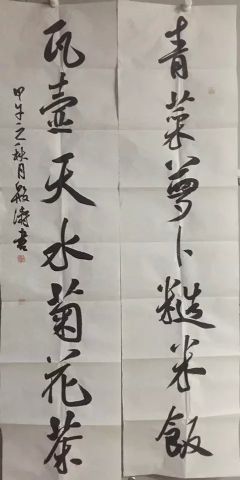 青菜萝卜糙米飯
瓦壶天水菊花茶
甲午之秋月毅涛书